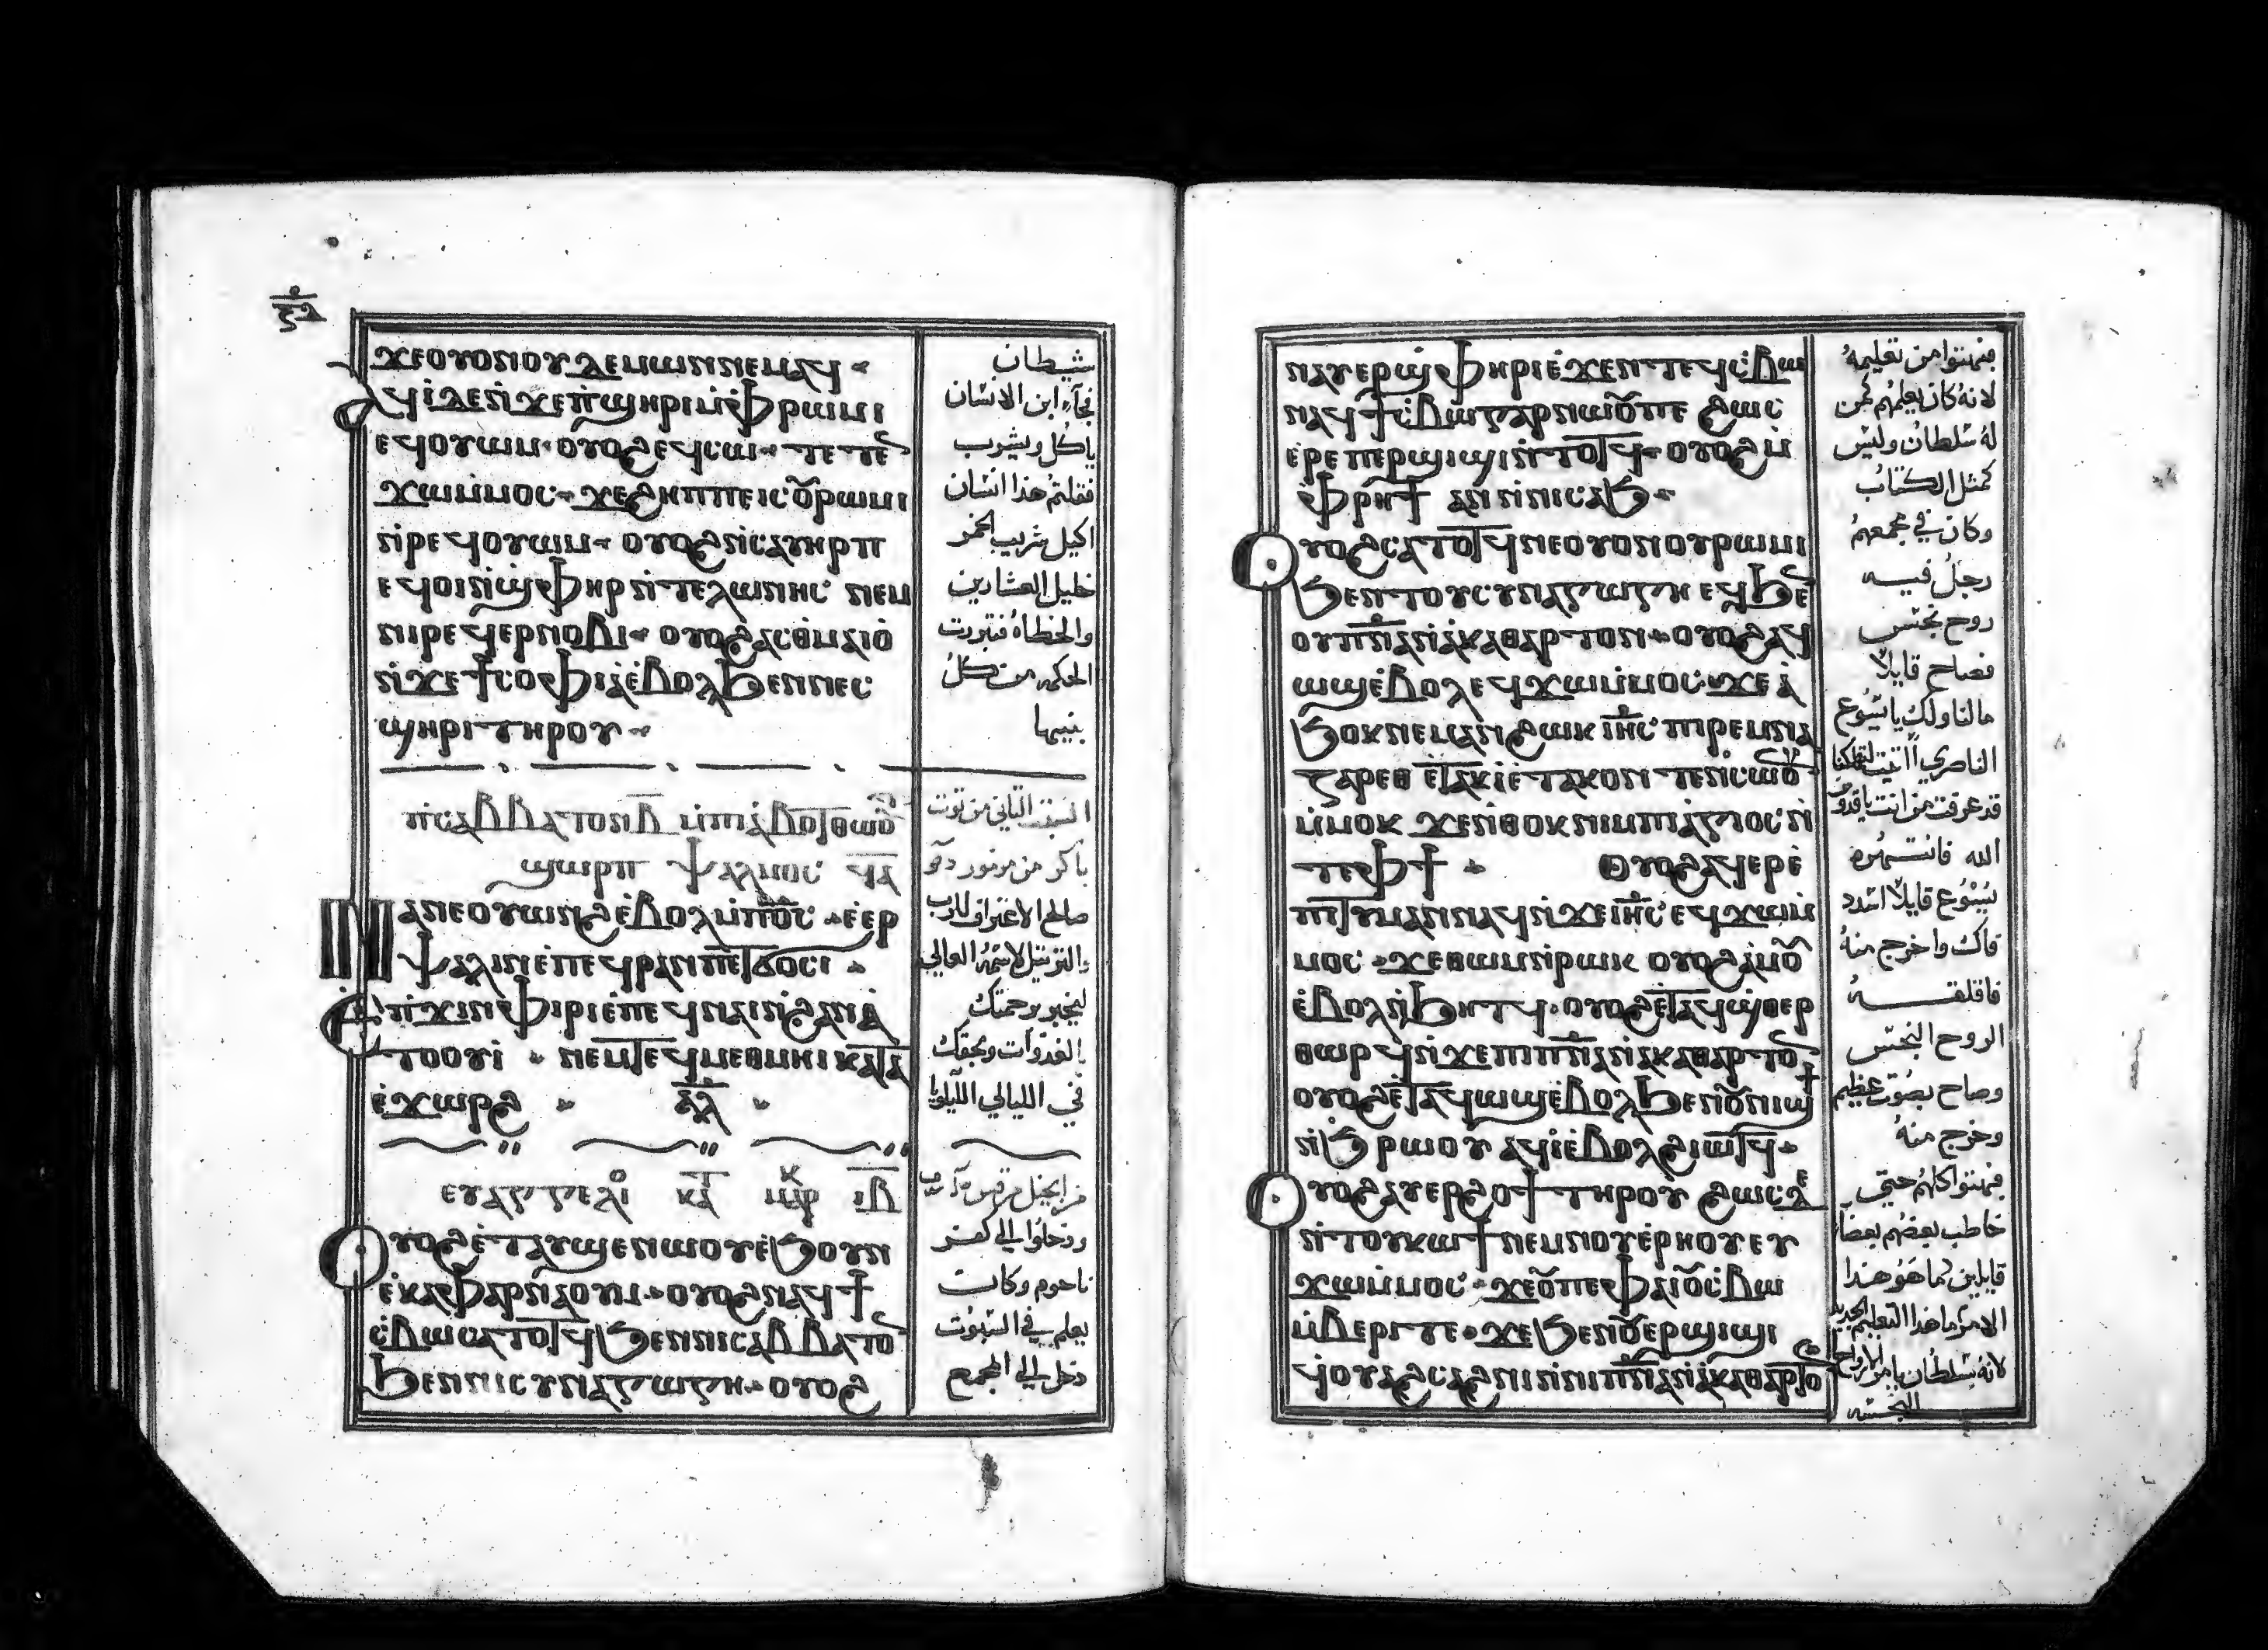 ϫⲉⲟⲩⲟⲛⲟⲩⲇⲉⲙⲱⲛⲛⲉⲙⲁϥ
ⲁϥⲓ̀ⲇⲉⲛ̀ϫⲉⲡ̀ϣⲏⲣⲓⲙ̀ⲫ̀ⲣⲱⲙⲓ
ⲉϥⲟⲩⲱⲙ· ⲟⲩⲟϩⲉϥⲥⲱ ⲧⲉⲧⲉ̄
ϫⲱⲙ̀ⲙⲟⲥ ϫⲉϩⲏⲡⲡⲉⲓⲥⲟ̃ⲣⲱⲙⲓ
ⲛ̀ⲣⲉϥⲟⲩⲱⲙ ⲟⲩⲟϩⲛ̀ⲥⲁⲩⲏⲣⲡ
ⲉϥⲟⲓⲛ̀ϣ̀ⲫⲏⲣⲛ̀ⲧⲉⲗⲱⲛⲏⲥ ⲛⲉⲙ
ⲛⲓⲣⲉϥⲉⲣⲛⲟⲃⲓ ⲟⲩⲟϩⲁⲥⲑⲙⲁⲓⲟ̀
ⲛ̀ϫⲉϯⲥⲟⲫⲓⲁⲉ̀ⲃⲟⲗϧⲉⲛⲛⲉⲥ
ϣⲏⲣⲓⲧⲏⲣⲟⲩ
ⲡⲓⲥⲁⲃⲃⲁⲧⲟⲛⲃ̄ ⲙ̀ⲡⲓⲁ̀ⲃⲟⲧⲑⲱⲟ̃
ϣⲱⲣⲡ ⲯⲁⲗⲙⲟⲥ ϥ̄ⲁ̄
ⲛⲁⲛⲉⲟⲩⲱⲛϩⲉ̀ⲃⲟⲗⲙ̀ⲡⲟ̅ⲥ̅ ⲉ̀ⲉⲣ
ⲯⲁⲗⲓⲛⲉ̀ⲡⲉϥⲣⲁⲛⲡⲉⲧϭⲟⲥⲓ
ⲉ̀ⲡ̀ϫⲓⲛⲫⲓⲣⲓⲉ̀ⲡⲉϥⲛⲁⲓⲛ̀ϩⲁⲛⲁ̀
ⲧⲟⲟⲩⲓ ⲛⲉⲙⲧⲉϥⲙⲉⲑⲙⲏⲓⲕⲁⲧⲁ
ⲉ̀ϫⲱⲣϩ ⲁ̅ⲗ̅
ⲉⲩⲁⲅⲅⲉⲗⲓⲟ ⲕⲁ̅ⲧ ⲙⲁⲣⲕ ⲓ̅ⲃ̅
ⲟⲩⲟϩⲉ̀ⲧⲁⲩϣⲉⲛⲱⲟⲩⲉ̀ϧⲟⲩⲛ
ⲉ̀ⲕⲁⲫⲁⲣⲛⲁⲟⲩⲙ ⲟⲩⲟϩⲛⲁϥϯ
ⲥ̀ⲃⲱⲥⲁⲧⲟⲧϥϧⲉⲛⲛⲓⲥⲁⲃⲃⲁⲧⲟ̄
ϧⲉⲛⲛⲓⲥⲩⲛⲁⲅⲱⲅⲏ ⲟⲩⲟϩ
شيطان
فجاء ابن الانسان
ياكل ويشرب
فقلتم هذا انسان
اكيل شريب الخمر
خليل العشارين
والخطاة فتبررت
الحكمه من كل
بنيها
السبت الثاني من توت
باكر من مزمور
صالح الاعتراف للرب
والترتيل لاسمه العالي
ليخبر برحمتك
بالغدوات وبحقك
في الليالي الليلويا
من انجيل مرقس
ودخلوا الي كفر
ناحوم وكانت
يعلم في السبوت
دخل الي المجمع
ⲛⲁⲩⲉⲣϣ̀ⲫⲏⲣⲓⲉ̀ϫⲉⲛⲧⲉϥⲥ̀ⲃⲱ
ⲛⲁϥϯⲥ̀ⲃⲱⲅⲁⲣⲛⲱⲟ̃ⲡⲉ ϩⲱⲥ
ⲉ̀ⲣⲉⲡⲉⲣϣⲓϣⲓⲛ̀ⲧⲟⲧϥ ⲟⲩⲟϩⲙ̀
ⲫ̀ⲣⲏϯ ⲁⲛⲛ̀ⲛⲓⲥⲁϧ
ⲟⲩⲟϩⲥⲁⲧⲟⲧϥⲛⲉⲟⲩⲟⲛⲟⲩⲣⲱⲙⲓ
ϧⲉⲛⲧⲟⲩⲥⲩⲛⲁⲅⲱⲅⲏ ⲉϥϧⲉ̄
ⲟⲩⲡⲛ̅ⲁⲛ̀ⲁ̀ⲕⲁⲑⲁⲣⲧⲟⲛ ⲟⲩⲟϩⲁϥ
ⲱϣⲉ̀ⲃⲟⲗⲉϥϫⲱⲙ̀ⲙⲟⲥ ϫⲉⲁ̀
ϧⲟⲕⲛⲉⲙⲁⲛϩⲱⲕ ⲓⲏ̅ⲥ̅ ⲡⲓⲣⲉⲙⲛⲁ
ⲍⲁⲣⲉⲑ ⲉ̀ⲧⲁⲕⲓ̀ⲉ̀ⲧⲁⲕⲟⲛ ⲧⲉⲛⲥⲱⲟ̃
ⲙ̀ⲙⲟⲕ ϫⲉⲛ̀ⲑⲟⲕⲛⲓⲙⲡⲓⲁ̀ⲅⲓⲟⲥⲛ̀
ⲧⲉⲫϯ ⲟⲩⲟϩⲁϥⲉⲣⲉ̀
ⲡⲓⲧⲓⲙⲁⲛⲛⲁϥⲛ̀ϫⲉⲓⲏ̅ⲥ̅ ⲉϥϫⲱⲙ̀
ⲙⲟⲥ ϫⲉⲑⲱⲙⲛ̀ⲣⲱⲕ ⲟⲩⲟϩⲁ̀ⲙⲟ̃
ⲉ̀ⲃⲟⲗⲛ̀ϧⲏⲧϥ ⲟⲩⲟϩⲉ̀ⲧⲁϥϣ̀ⲑⲉⲣ
ⲑⲱⲣϥⲛ̀ϫⲉⲡⲓⲡⲛ̅ⲁⲛ̀ⲁⲕⲁⲑⲁⲣⲧⲟ̄
ⲟⲩⲟϩⲉ̀ⲧⲁϥⲱϣⲉ̀ⲃⲟⲗϧⲉⲛⲟ̃ⲛⲓϣϯ
ⲛ̀ϧⲣⲱⲟⲩ ⲁϥⲓ̀ⲉ̀ⲃⲟⲗϩⲓⲱⲧϥ
ⲟⲩⲟϩⲁⲩⲉⲣϩⲟϯⲧⲏⲣⲟⲩ ϩⲱⲥⲇⲉ
ⲛ̀ⲧⲟⲩⲕⲱϯⲛⲉⲙⲛⲟⲩⲉ̀ⲣⲏⲟⲩⲉⲩ
ϫⲱⲙ̀ⲙⲟⲥ ϫⲉⲟ̃ⲡⲉⲫⲁⲓⲟ̃ⲥ̀ⲃⲱ
ⲙ̀ⲃⲉⲣⲓⲧⲉ ϫⲉϧⲉⲛⲟ̃ⲉⲣϣⲓϣⲓ
ϥⲟⲩⲁϩⲥⲁϩⲛⲓⲛ̀ⲛⲓⲡⲛ̅ⲁⲛ̀ⲁ̀ⲕⲁⲑⲁⲣⲧⲟ
فبهتوا من تعليمه
لانه كان يعلمهم كمن
له سلطان وليس
كمثل الكتاب
وكان في مجمعهم
رجل فيه
روح نجس
فصاح قايلا
مالنا ولك يا يسوع
الناصري اتيت لتهلكنا
قد عرفت من انت يا قدوس
الله فانتهره
يسوع قايلا اسدد
فاك واخرج منه
فاقلقه
الروح النجس
وصاح بصوت عظيم
وخرج منه
فبهتوا كلهم حتي
خاطب بعضهم بعضا
قايلين ما هو هذا
الامر ما هذا التعليم الجديد
لانه بسلطان يامر الارواح
النجسه